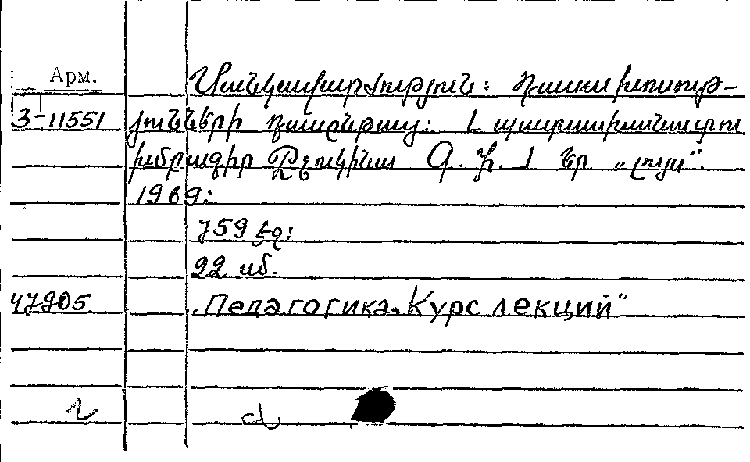 Арм.
Մանկավարժություն: Դասախոսութ-
3-11551 յունների դասընթաց: Լ պատասխանատու
խմբագիր Գ. Ի. Եր „Լույս”.
1969:
759 էջ:
22 սմ.
47905 „Педагогика. Курс лекций”